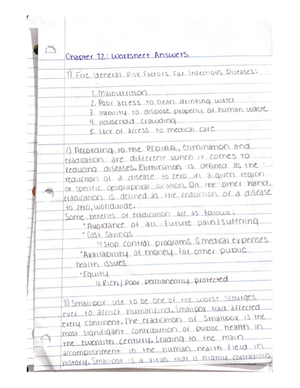 Chapter 12: Worksheet Answers
1) Five General Risk Factors For Infectious Diseases:
1. Malnutrition
2. Poor access to clean drinking water
3. Inability to dispose properly of human waste
4. Household crowding
5. Lack of access to medical care
2) According to the reading, Elimination and
eradication are different when it comes to
reducing diseases. Elimination is defined as the
reduction of a disease to zero in a given region
or specific geographical location. On the other hand,
eradication is defined as the reduction of a disease
to zero, worldwide.
Some benefits of eradication are as follows:
*Avoidance of all future pain/suffering
*Cost Savings
↳ Stop control programs & medical expenses
*Availability of money for other public
health issues
*Equity
↳ Rich/poor permanently protected
3) Smallpox use to be one of the worst scourges
ever to afflict humankind. Smallpox had affected
every continent. The eradication of Smallpox is the
most significant contribution of public health in
the twentieth century, leading to the main
accomplishment in the human health field in
history. Smallpox is a virus that is highly contagious